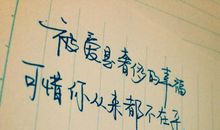 被爱是奢侈的幸福
可惜你从来都不在乎